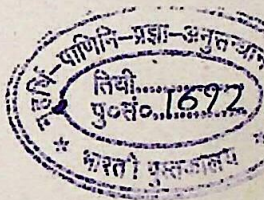 महर्षि-पाणिनि-प्रज्ञा-अनुसन्धान
तिथी..............
पु०सं०..1692
* भारती पुस्तकालय *